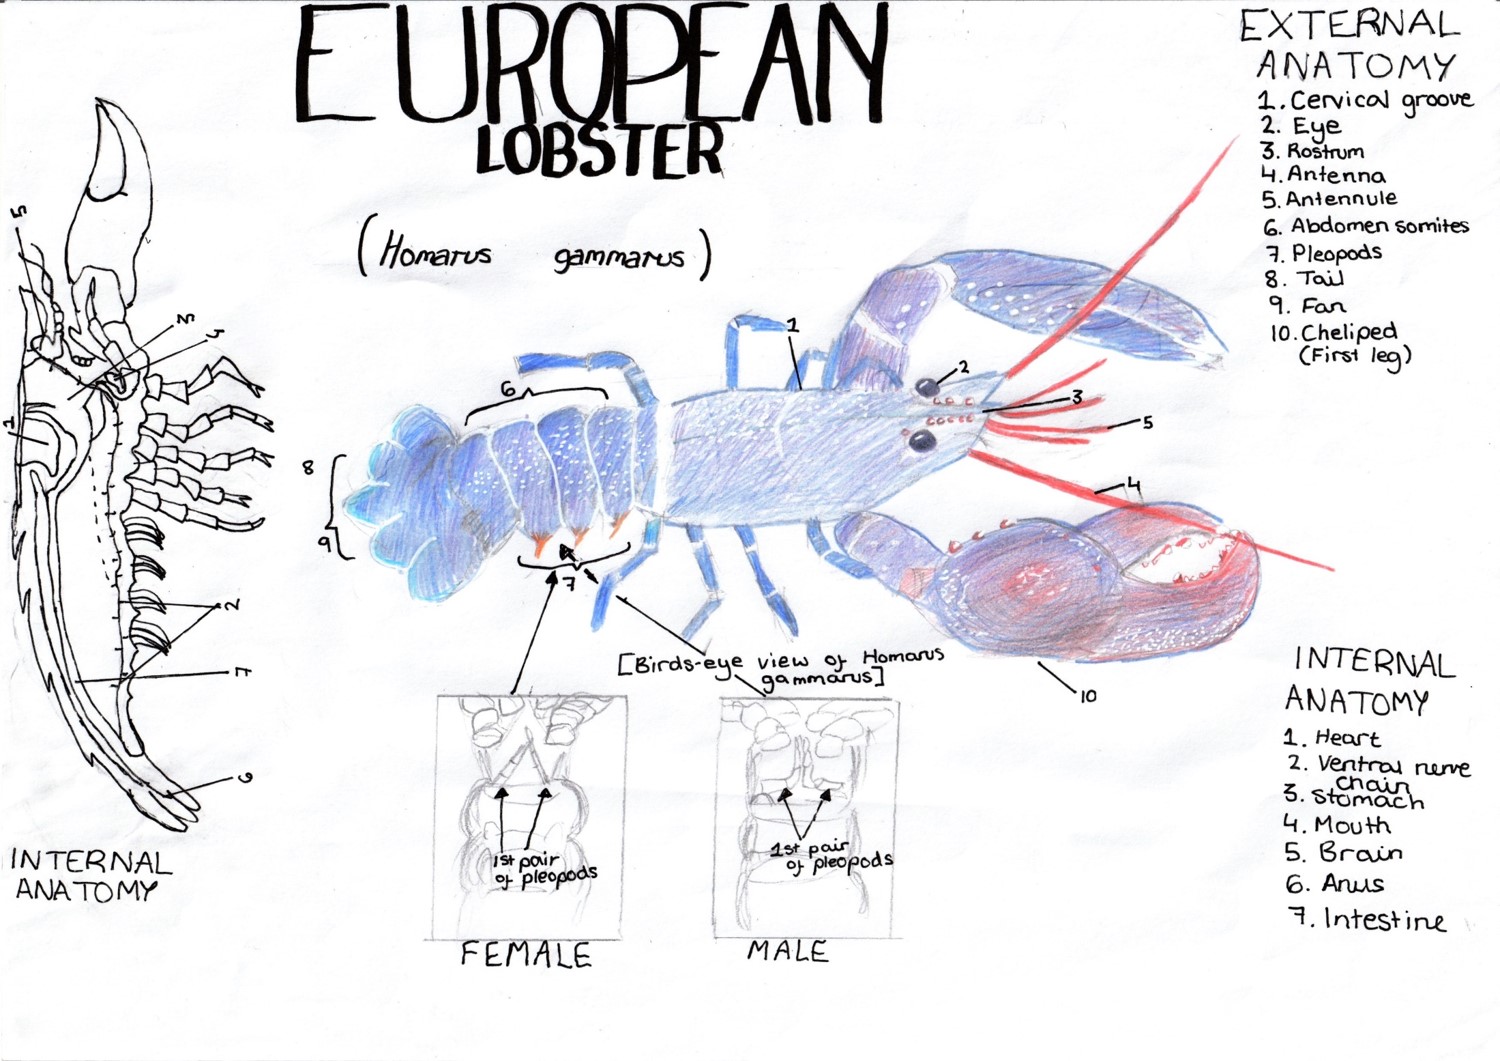 EUROPEAN
LOBSTER
(Homarus gammarus)
EXTERNAL
ANATOMY
1. Cervical groove
2. Eye
3. Rostrum
4. Antenna
5. Antennule
6. Abdomen somites
7. Pleopods
8. Tail
9. Fan
10. Cheliped
(First leg)
5
3
4
1
2
7
6
INTERNAL
ANATOMY
1
2
3
5
4
6
8
9
7
10
[Birds-eye view of Homarus
gammarus]
1st pair
of pleopods
FEMALE
1st pair
of pleopods
MALE
INTERNAL
ANATOMY
1. Heart
2. Ventral nerve
chain
3. Stomach
4. Mouth
5. Brain
6. Anus
7. Intestine